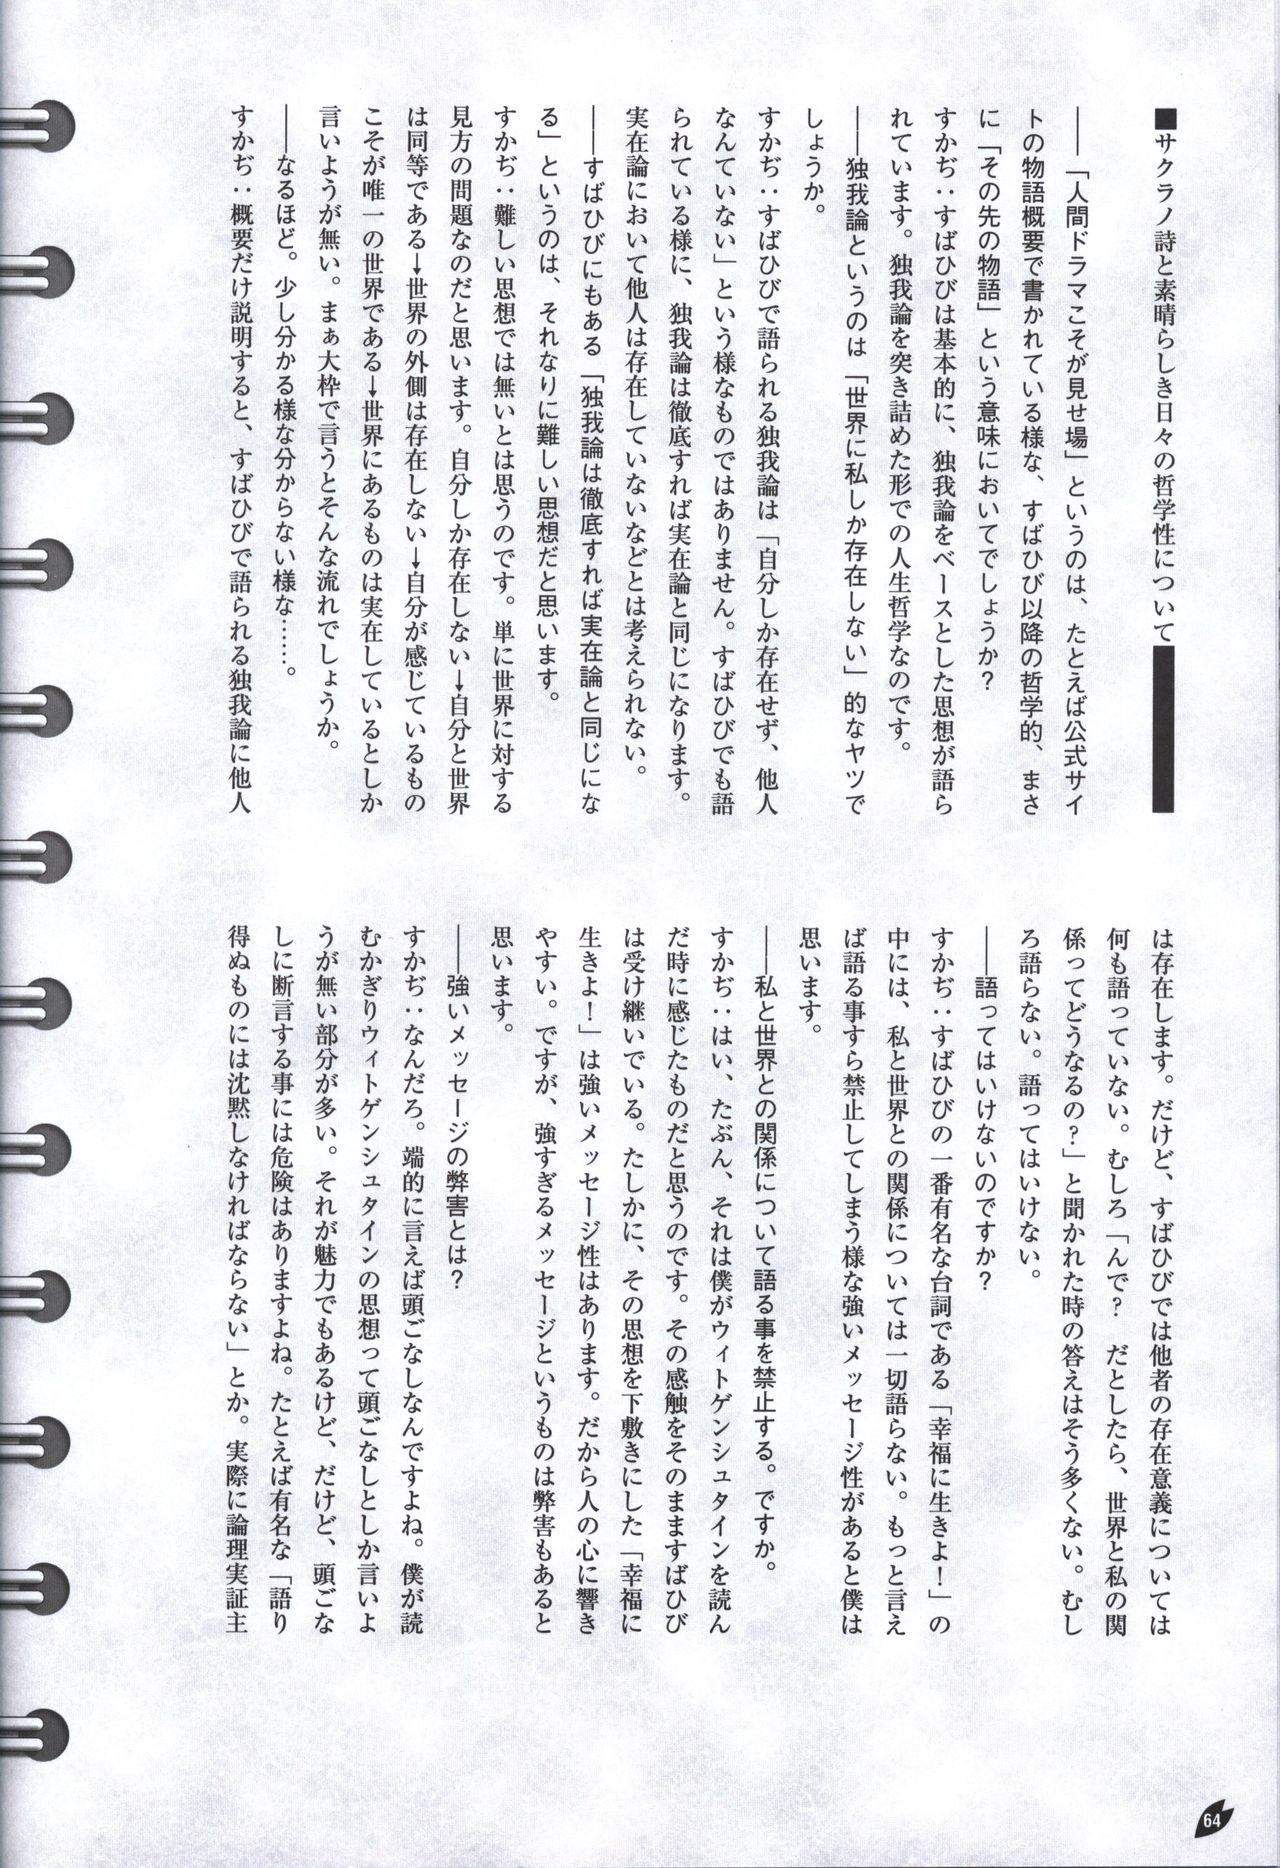 ■サクラノ詩と素晴らしき日々の哲学性について
――「人間ドラマこそが見せ場」というのは、たとえば公式サイ
トの物語概要で書かれている様な、すばひび以降の哲学的、まさ
に「その先の物語」という意味においてでしょうか？
すかぢ：すばひびは基本的に、独我論をベースとした思想が語ら
れています。独我論を突き詰めた形での人生哲学なのです。
――独我論というのは「世界に私しか存在しない」的なヤツで
しょうか。
すかぢ：すばひびで語られる独我論は「自分しか存在せず、他人
なんていない」という様なものではありません。すばひびでも語
られている様に、独我論は徹底すれば実在論と同じになります。
実在論において他人は存在していないなどとは考えられない。
――すばひびにもある「独我論は徹底すれば実在論と同じにな
る」というのは、それなりに難しい思想だと思います。
すかぢ：難しい思想では無いとは思うのです。単に世界に対する
見方の問題なのだと思います。自分しか存在しない→自分と世界
は同等である→世界の外側は存在しない→自分が感じているもの
こそが唯一の世界である→世界にあるものは実在しているとしか
言いようが無い。まぁ大枠で言うとそんな流れでしょうか。
――なるほど。少し分かる様な分からない様な……。
すかぢ：概要だけ説明すると、すばひびで語られる独我論に他人
は存在します。だけど、すばひびでは他者の存在意義については
何も語っていない。むしろ「んで？　だとしたら、世界と私の関
係ってどうなるの？」と聞かれた時の答えはそう多くない。むし
ろ語らない。語ってはいけない。
――語ってはいけないのですか？
すかぢ：すばひびの一番有名な台詞である「幸福に生きよ！」の
中には、私と世界との関係については一切語らない。もっと言え
ば語る事すら禁止してしまう様な強いメッセージ性があると僕は
思います。
――私と世界との関係について語る事を禁止する。ですか。
すかぢ：はい、たぶん、それは僕がウィトゲンシュタインを読ん
だ時に感じたものだと思うのです。その感触をそのまますばひび
は受け継いでいる。たしかに、その思想を下敷きにした「幸福に
生きよ！」は強いメッセージ性はあります。だから人の心に響き
やすい。ですが、強すぎるメッセージというものは弊害もあると
思います。
――強いメッセージの弊害とは？
すかぢ：なんだろ。端的に言えば頭ごなしなんですよね。僕が読
むかぎりウィトゲンシュタインの思想って頭ごなしとしか言いよ
うが無い部分が多い。それが魅力でもあるけど、だけど、頭ごな
しに断言する事には危険はありますよね。たとえば有名な「語り
得ぬものには沈黙しなければならない」とか。実際に論理実証主
64